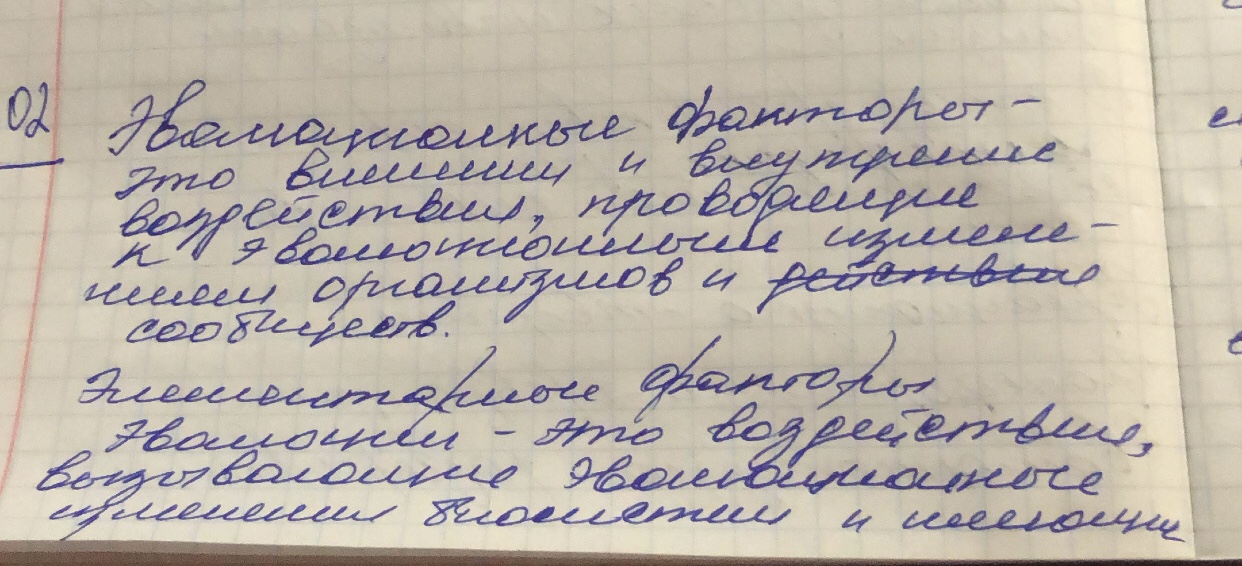 02
Эволюционные факторы –
это внешнии и внутрение
воздействия, проводящие
к эволюционным измене-
ниям организмов и действия
сообществ.
Элементарные факторы
эволюции – это воздействия,
вызывающие эволюционные
изменения и имеющие